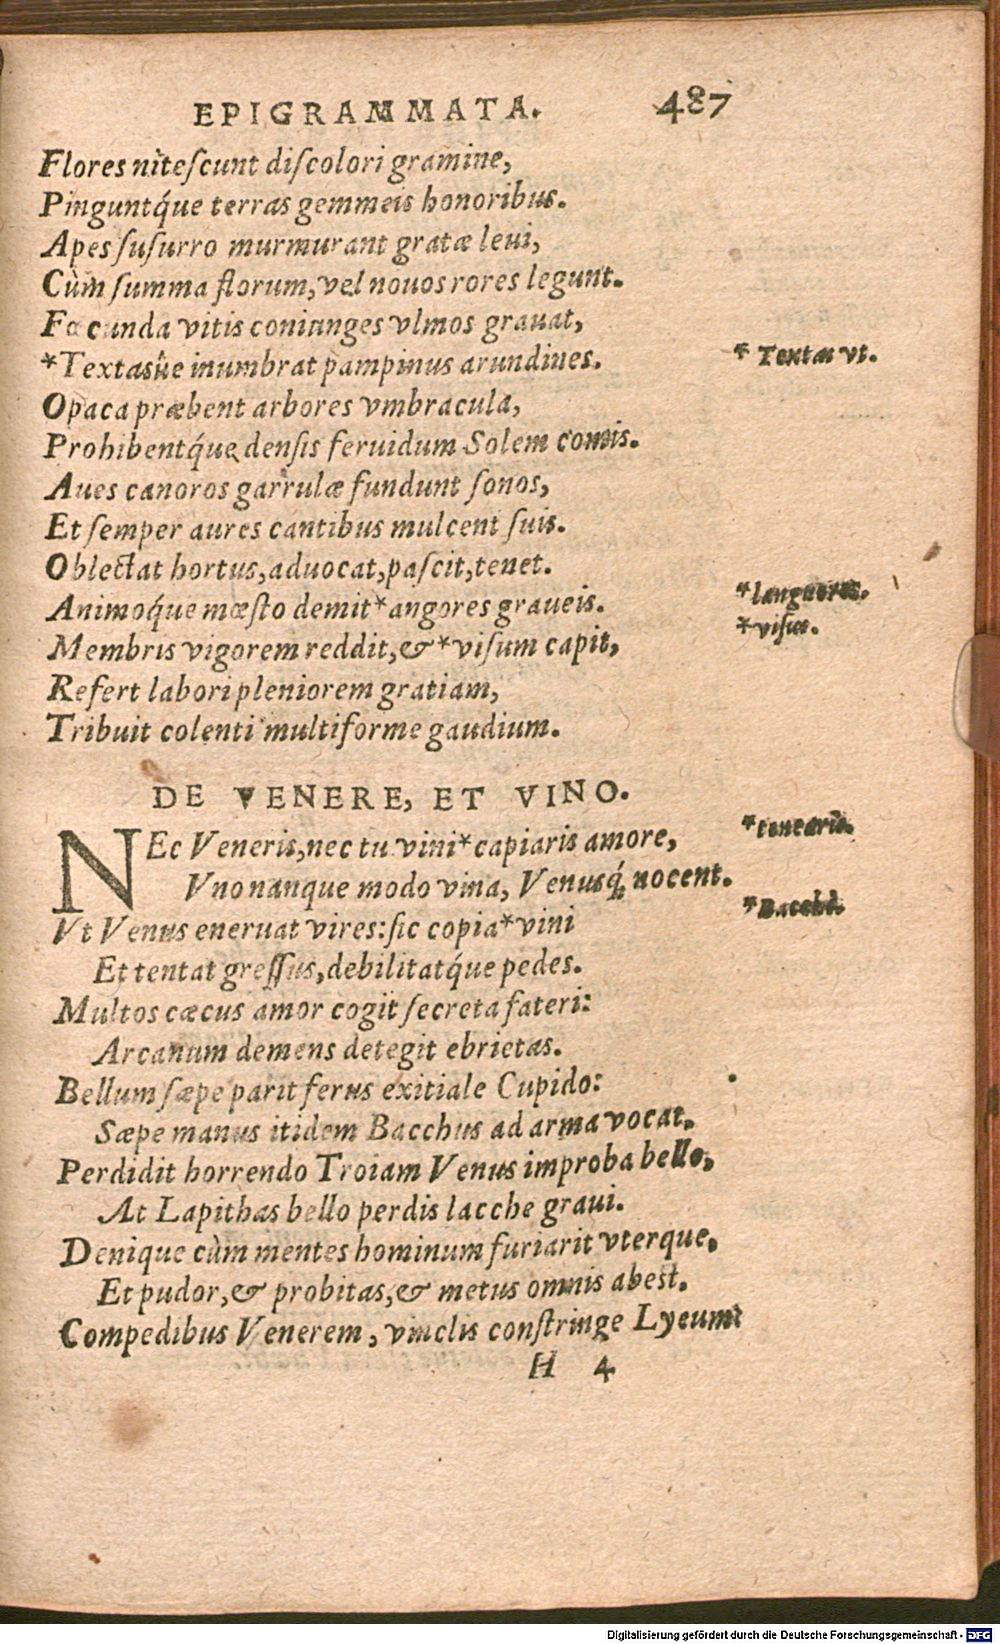 EPIGRAMMATA. 487
Flores niteſcunt diſcolori gramine,
Pinguntq́ue terras gemmeis honoribus.
Apes ſuſurro murmurant gratæ leui,
Cùm ſumma florum, vel nouos rores legunt.
Fœcunda vitis coniunges vlmos grauat,
*Textasúe inumbrat pampinus arundines. * Textas vt.
Opaca præbent arbores vmbracula,
Prohibentq́ue denſis feruidum Solem comis.
Aues canoros garrulæ fundunt ſonos,
Et ſemper aures cantibus mulcent ſuis.
Oblectat hortus, aduocat, paſcit, tenet.
Animoq́ue mœſto demit * angores graueis. * languores.
Membris vigorem reddit, & * viſum capit, * viſus.
Refert labori pleniorem gratiam,
Tribuit colenti multiforme gaudium.
DE VENERE, ET VINO.
NEc Veneris, nec tu vini * capiaris amore, * tenearis.
Vno nanque modo vina, Venusq́; nocent.
Vt Venus eneruat vires: ſic copia * vini * Bacchi.
Et tentat greſſus, debilitatq́ue pedes.
Multos cæcus amor cogit ſecreta fateri:
Arcanum demens detegit ebrietas.
Bellum ſæpe parit ferus exitiale Cupido:
Sæpe manus itidem Bacchus ad arma vocat.
Perdidit horrendo Troiam Venus improba bello,
At Lapithas bello perdis Iacche graui.
Denique cùm mentes hominum furiarit vterque,
Et pudor, & probitas, & metus omnis abest.
Compedibus Venerem, vinclis conſtringe Lyeum:
H 4
Digitalisierung gefördert durch die Deutsche Forschungsgemeinschaft - DFG